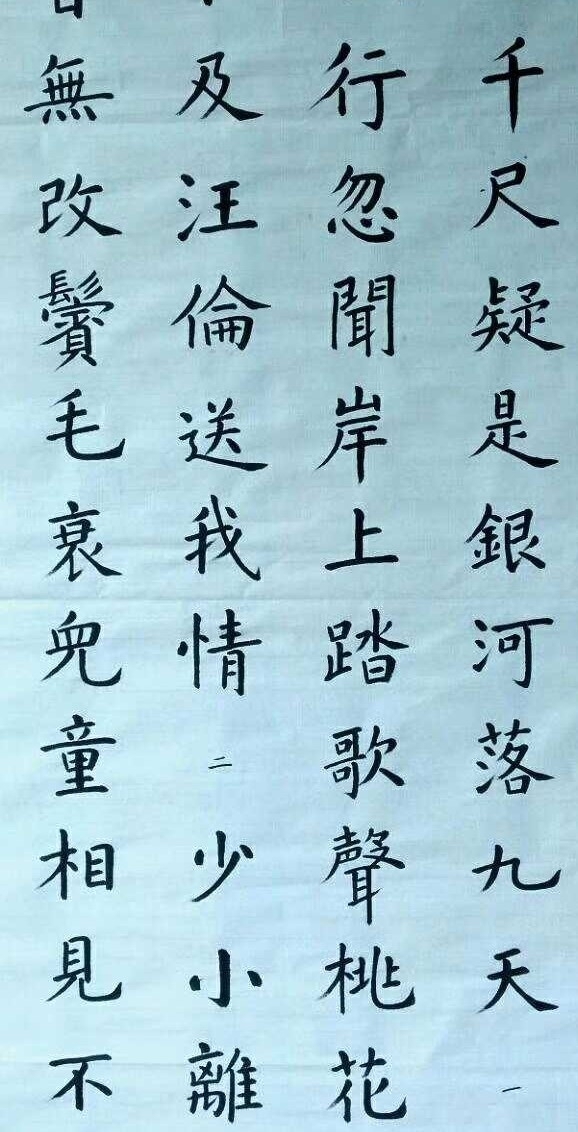 千尺疑是銀河落九天一
行忽聞岸上踏歌聲桃花
及汪倫送我情二少小離
無改鬢毛衰兒童相見不